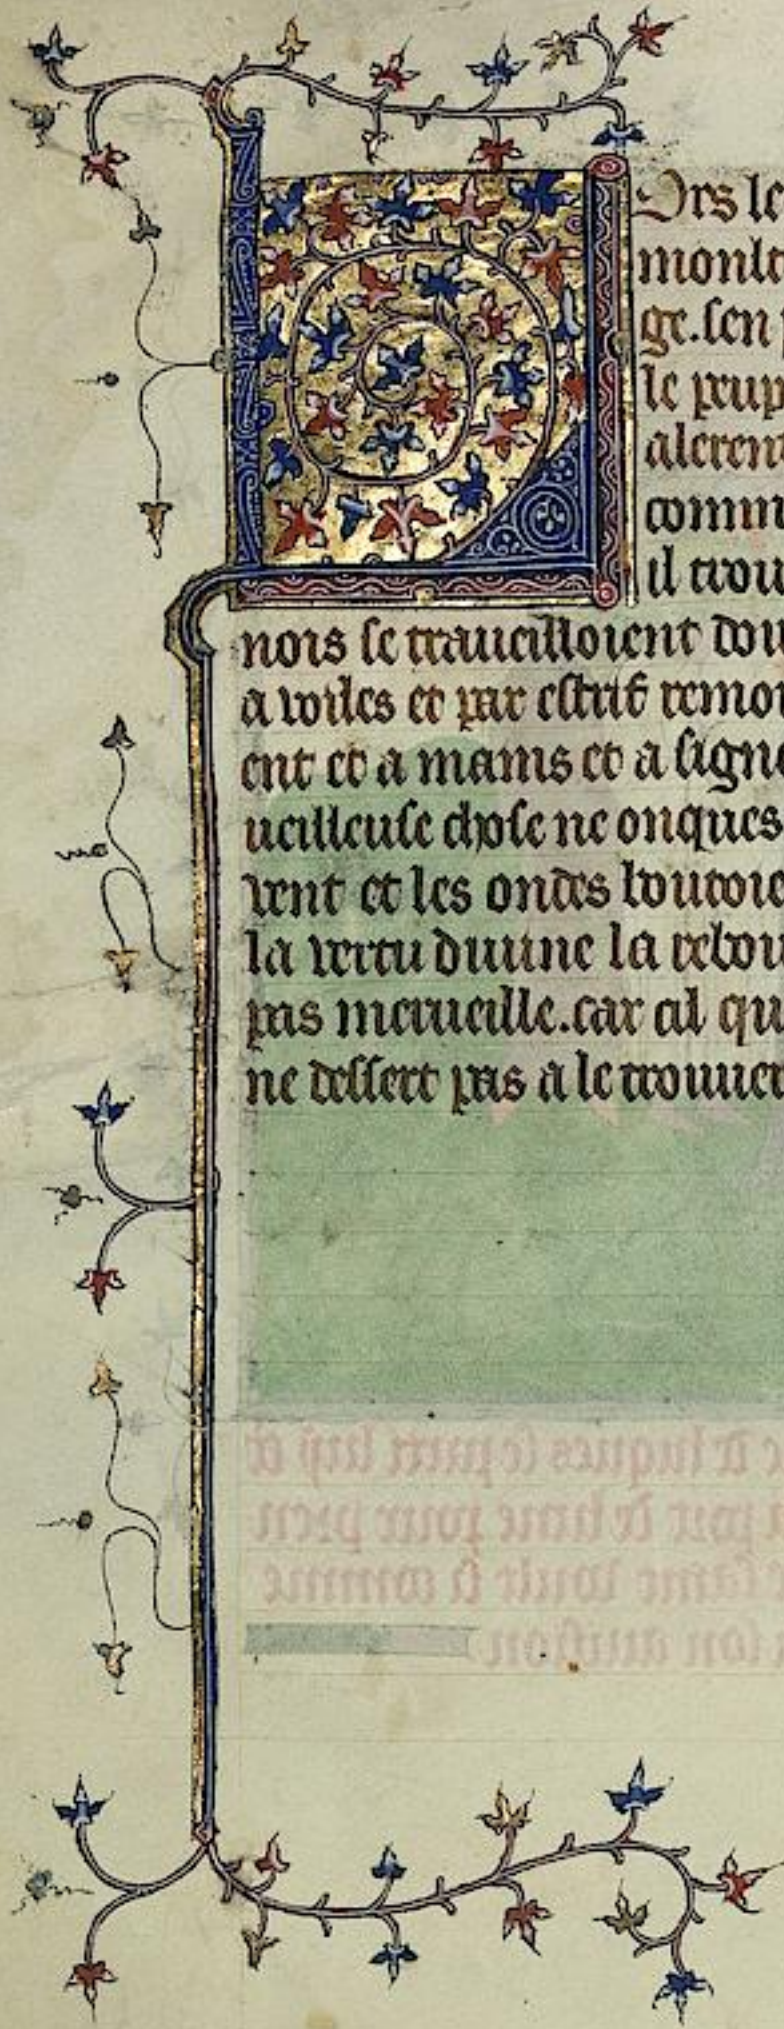 Ors le
monlt
ge. sen p
le peup
aleren
comm
il trou
nois se traueilloient dou
a voiles et par estrif remo
ent et a mains et a signe
ueilleuse chose ne onques
vent et les ondes boutoie
la vertu diuine la rebou
pas merueille. car cil qu
ne dessert pas a le trouuer